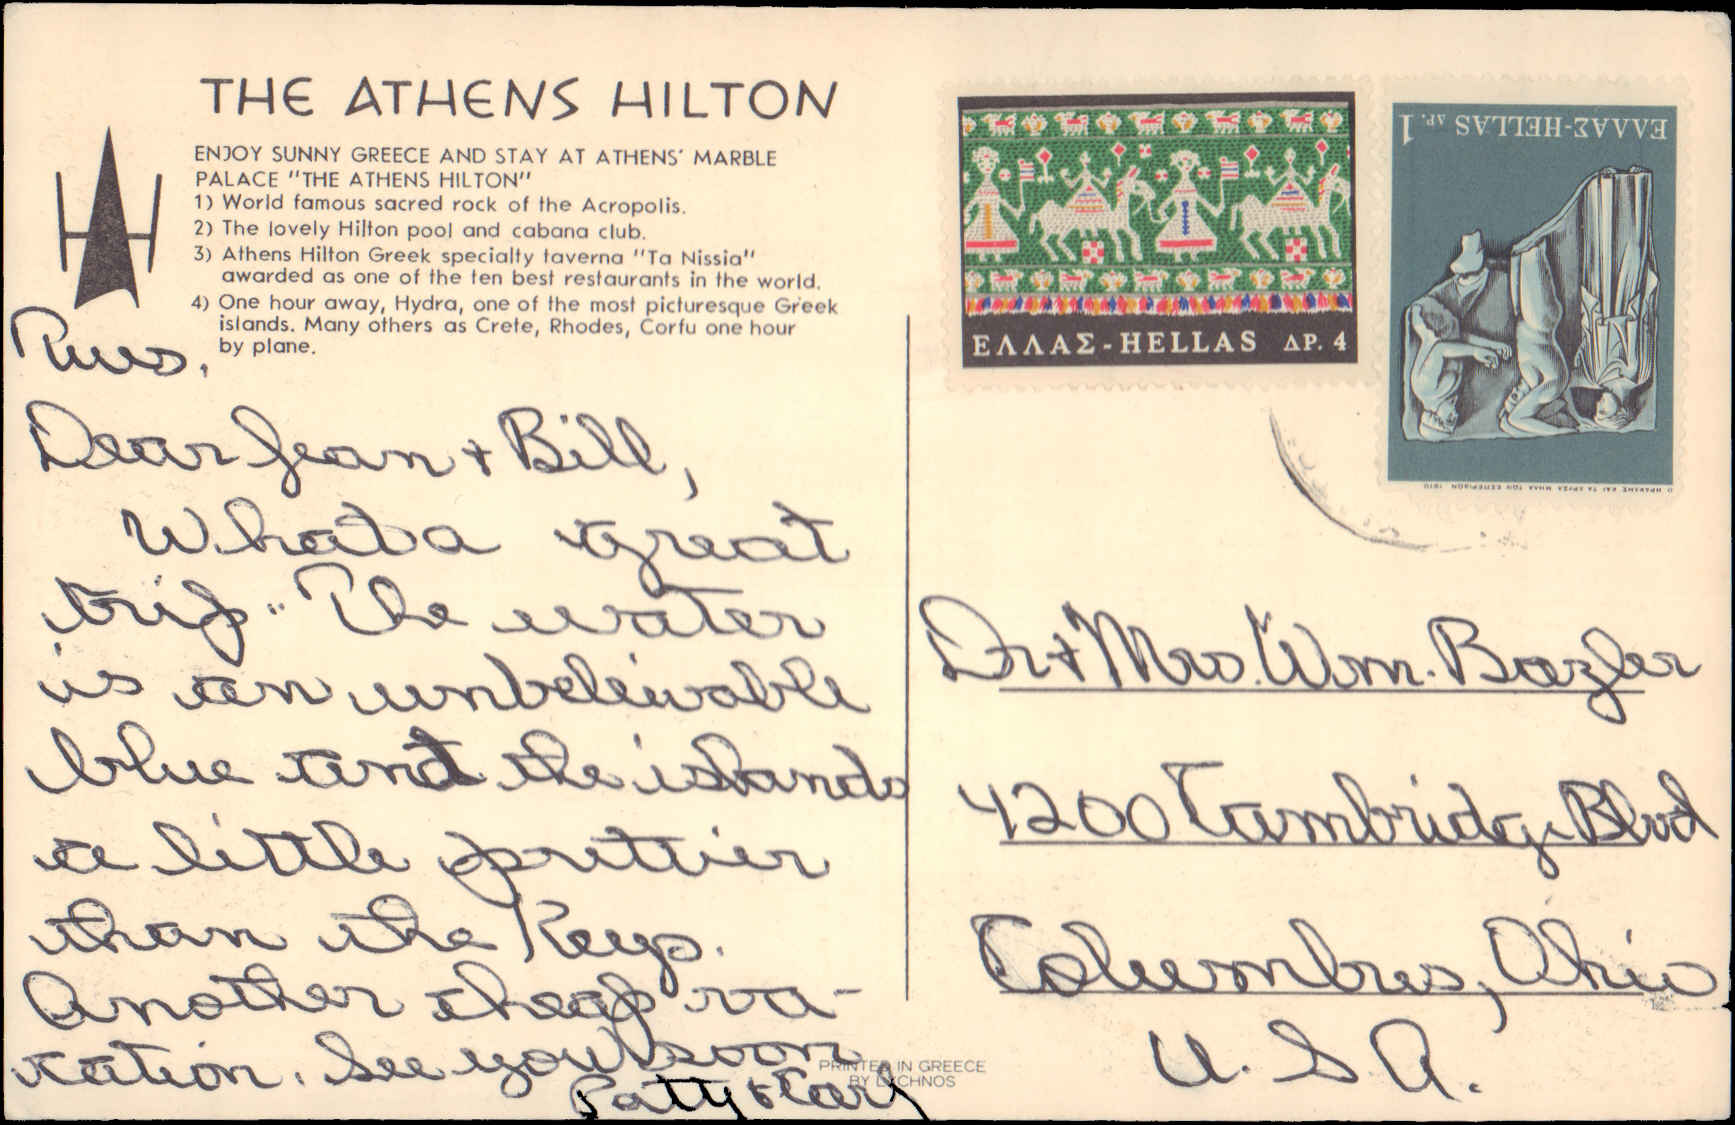 THE ATHENS HILTON
ENJOY SUNNY GREECE AND STAY AT ATHENS' MARBLE
PALACE "THE ATHENS HILTON"
1) World famous sacred rock of the Acropolis.
2) The lovely Hilton pool and cabana club.
3) Athens Hilton Greek specialty taverna "Ta Nissia"
awarded as one of the ten best restaurants in the world.
4) One hour away, Hydra, one of the most picturesque Greek
islands. Many others as Crete, Rhodes, Corfu one hour
by plane.
Tues.
Dear Jean + Bill,
What a great
trip. The water
is an unbeleivable
blue and the islands
a little prettier
than the Keys.
Another cheap va-
cation. See you soon
Patty & Carl
PRINTED IN GREECE
BY LYCHNOS
ΕΛΛΑΣ-HELLAS ΔΡ. 4
ΕΛΛΑΣ-HELLAS ΔΡ. 1
Ο ΗΡΑΚΛΗΣ ΚΑΙ ΤΑ ΧΡΥΣΑ ΜΗΛΑ ΤΩΝ ΕΣΠΕΡΙΔΩΝ 1970
Dr + Mrs. Wm. Bazler
4200 Cambridge Blvd
Columbus, Ohio
U.S.A.